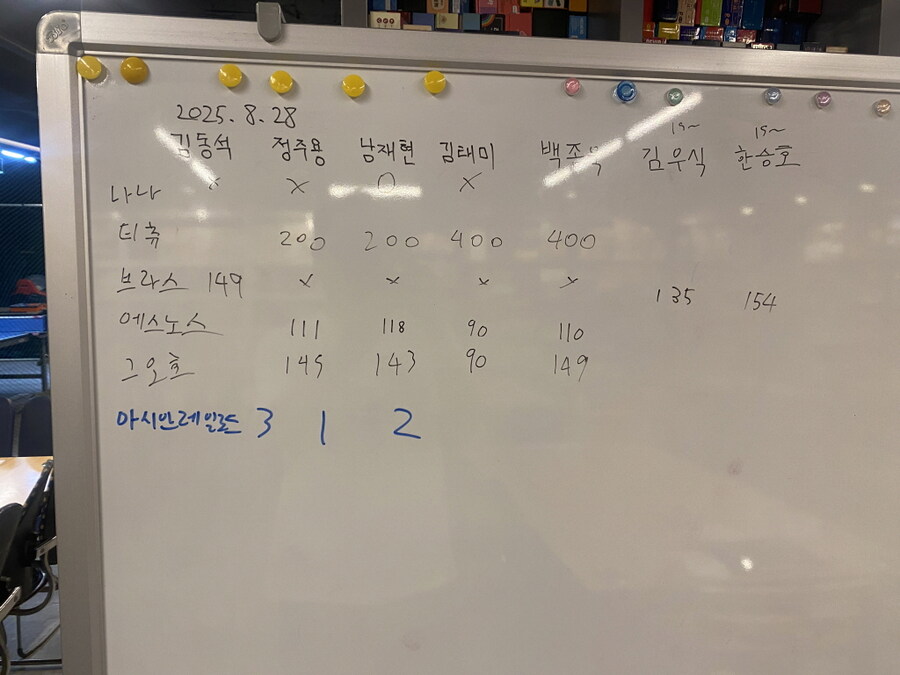 2025.8.28
15~ 15~
김동석 정주용 남재현 김태미 백종욱 김우식 한승호
나나 x x O x
티츄 200 200 400 400
브라스 149 x x x x 135 154
에스노스 111 118 90 110
그오호 145 143 90 149
아시안레일로드 3 1 2